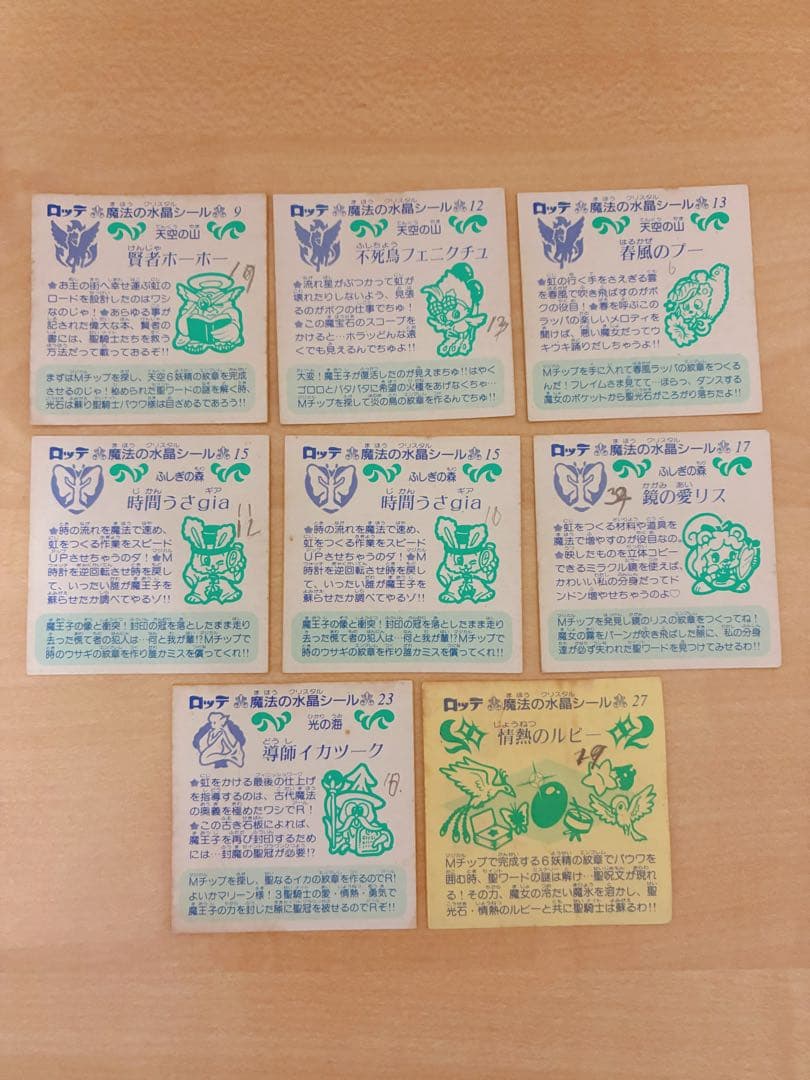 ロッテ 魔法の水晶シール 9
天空の山
賢者ホーホー
★お主の街へ幸せ運ぶ虹の
ロードを設計したのはワシ
なのじゃ！★あらゆる事が
記された偉大な本、賢者の
書には、聖騎士たちを救う
方法だって載っておるぞ!!
まずはMチップを探し、天空6妖精の紋章を完成
させるのじゃ！秘められた聖ワードの謎を解く時、
光石は蘇り聖騎士パウワ様は目ざめるであろう!!
ロッテ 魔法の水晶シール 12
天空の山
不死鳥フェニクチュ
★流れ星がぶつかって虹が
壊れたりしないよう、見張
るのがボクの仕事でちゅ！
★この魔宝石のスコープを
かけると…ホラッどんな遠
くでも見えるんでちゅよ!!
13
大変！魔王子が復活したのが見えまちゅ!!はやく
ゴロロとパタパタに希望の火種をあげなくちゃ…
Mチップを探して炎の鳥の紋章を作るんでちゅ!!
ロッテ 魔法の水晶シール 13
天空の山
春風のプー
6
★虹の行く手をさえぎる雲
を春風で吹き飛ばすのがボク
の役目！★春を呼ぶこの
ラッパの楽しいメロディを
聞けば、悪い魔女だってウ
キウキ踊りだしちゃうよ!!
Mチップを手に入れて春風ラッパの紋章をつくる
んだ！フレイムさま見てて…ほらっ、ダンスする
魔女のポケットから聖光石がころがり落ちたよ!!
ロッテ 魔法の水晶シール 15
ふしぎの森
時間うさgia
11
12
★時の流れを魔法で速め、
虹をつくる作業をスピード
UPさせちゃうのダ！★M
時計を逆回転させ時を戻し
て、いったい誰が魔王子を
蘇らせたか調べてやるゾ!!
魔王子の像と衝突！封印の冠を落としたまま走り
去った慌て者の犯人は…何と我が輩!?Mチップで
時のウサギの紋章を作り誰かミスを償ってくれ!!
ロッテ 魔法の水晶シール 15
ふしぎの森
時間うさgia
10
★時の流れを魔法で速め、
虹をつくる作業をスピード
UPさせちゃうのダ！★M
時計を逆回転させ時を戻し
て、いったい誰が魔王子を
蘇らせたか調べてやるゾ!!
魔王子の像と衝突！封印の冠を落としたまま走り
去った慌て者の犯人は…何と我が輩!?Mチップで
時のウサギの紋章を作り誰かミスを償ってくれ!!
ロッテ 魔法の水晶シール 17
ふしぎの森
鏡の愛リス
★虹をつくる材料や道具を
魔法で増やすのが役目なの。
★映したものを立体コピー
できるミラクル鏡を使えば、
かわいい私の分身だってド
ンドン増やせちゃうのよ♡
Mチップを発見し鏡のリスの紋章をつくってね！
魔女の霧をバーンが吹き飛ばした隙に、私の分身
達が必ず失われた聖ワードを見つけてみせるわ!!
ロッテ 魔法の水晶シール 23
光の海
導師イカツーク
★虹をかける最後の仕上げ
を指導するのは、古代魔法
の奥義を極めたワシでR！
★この古き石板によれば、
魔王子を再び封印するため
には…封魔の聖冠が必要!?
Mチップを探し、聖なるイカの紋章を作るのでR!
よいかマリーン様！3聖騎士の愛・情熱・勇気で
魔王子の力を封じた隙に聖冠を被せるのでRぞ!!
ロッテ 魔法の水晶シール 27
情熱のルビー
19
Mチップで完成する6妖精の紋章でパウワを
囲む時、聖ワードの謎は解け…聖呪文が現れ
る！その力、魔女の冷たい魔氷を溶かし、聖
光石・情熱のルビーと共に聖騎士は蘇るわ!!